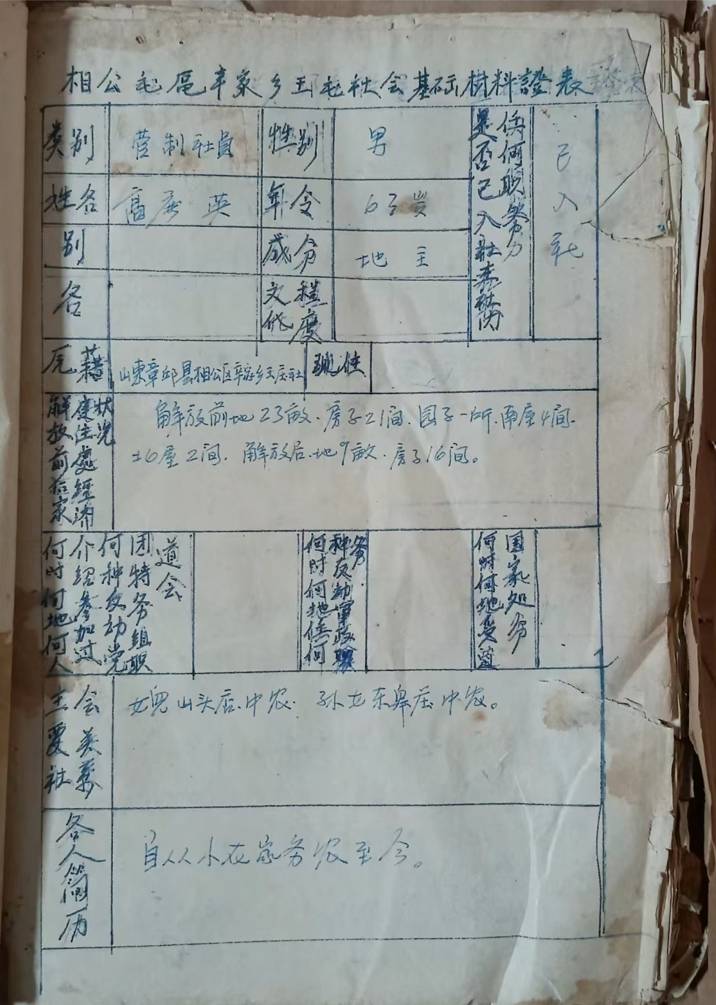 相公毛区辛家乡王毛社会基础材料證表
类别 营制社员 性别 男
姓名 英 年令 63岁
别 成分 地主
名 文化程度
是否已入社 任何职务 已入社
原籍 山东章邱县相公区辛家乡王庄社 现住
解放前后家庭住處经济状况
解放前地23敝.房子21间.园子一所.南屋4间.
北屋2间.解放后.地9敝.房子16间。
何时何地何人介绍参加过何种反动党团特务组职道会
何时何地任何种反动军政职务
何时何地受过国家処分
主要社会关系
女儿山头店.中农. 东皋庄中农。
各人简历
自从小在家务农至今。